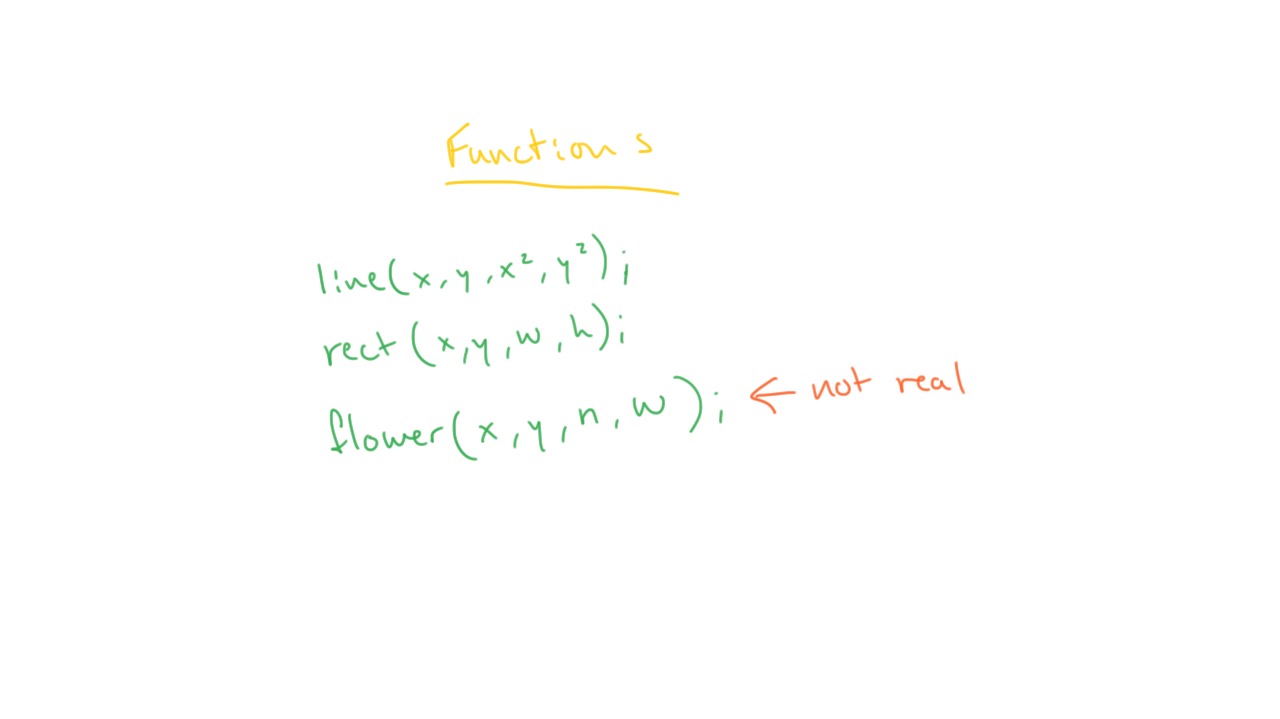 Functions
line(x, y, x², y²);
rect(x, y, w, h);
flower(x, y, n, w); ← not real